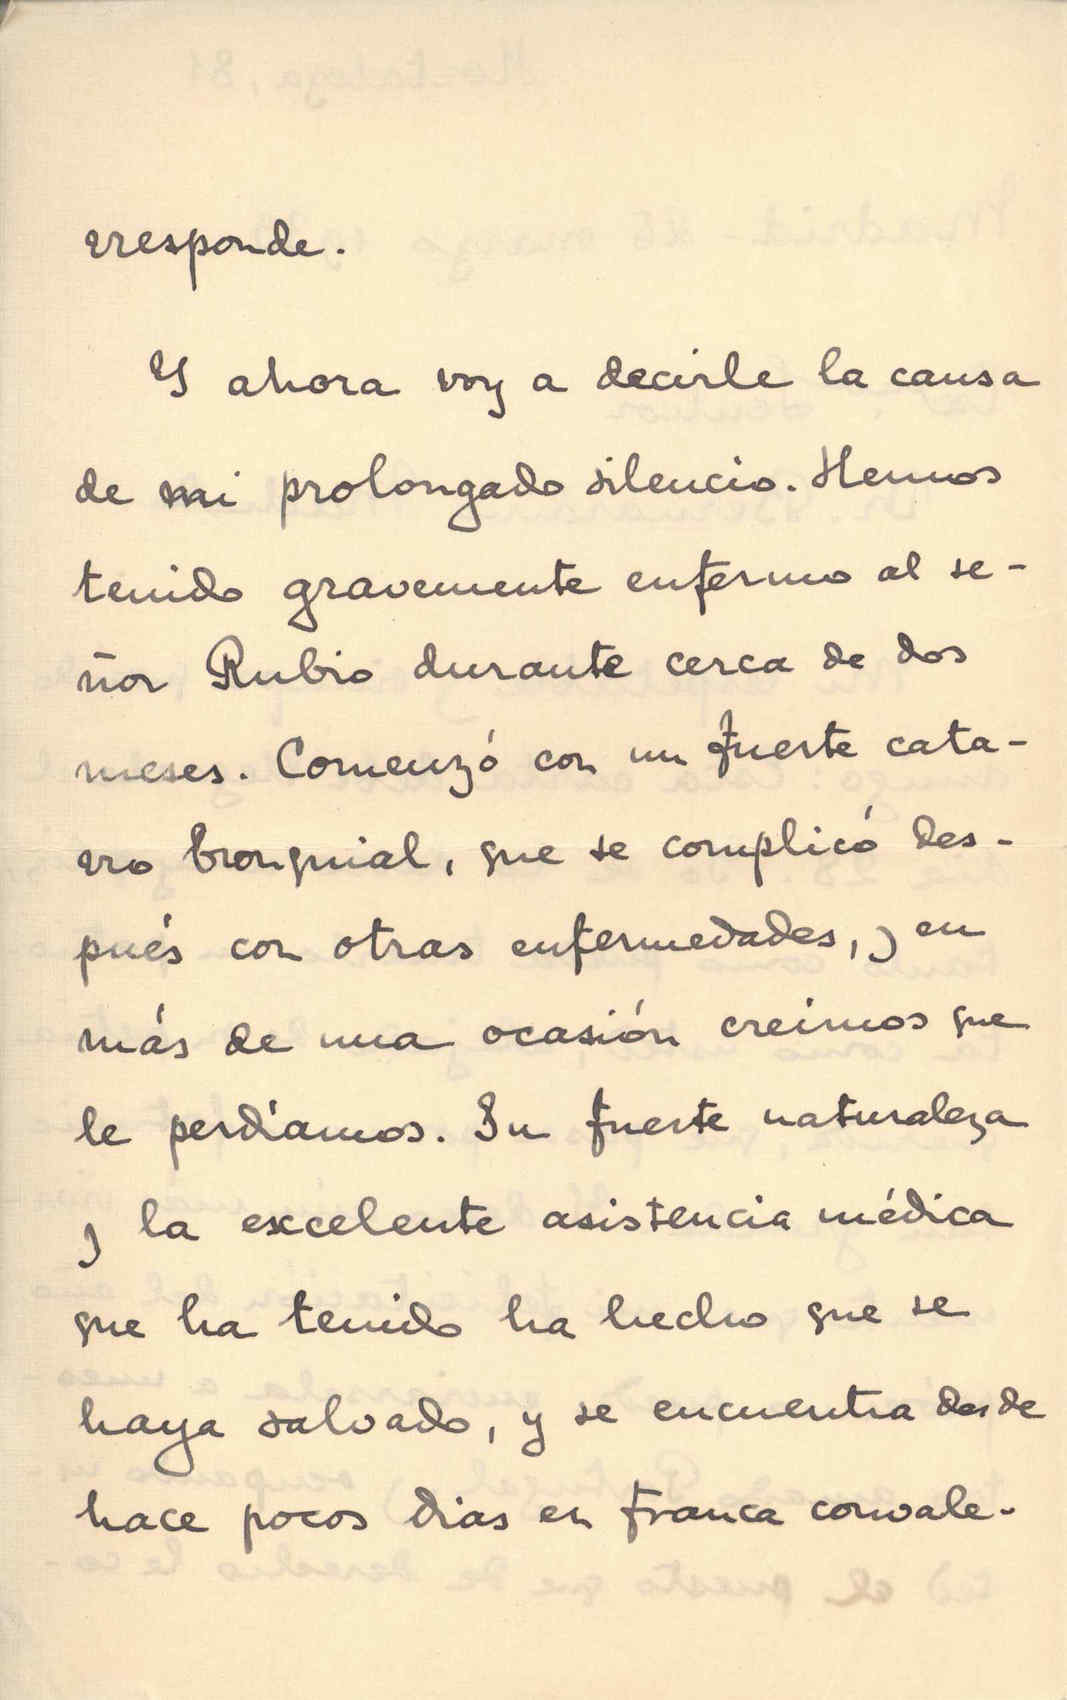 rresponde.
Y ahora voy a decirle la causa
de mi prolongado silencio. Hemos
tenido gravemente enfermo al se-
ñor Rubio durante cerca de dos
meses. Comenzó con un fuerte cata-
rro bronquial, que se complicó des-
pués con otras enfermedades, y en
más de una ocasión creimos que
le perdíamos. Su fuerte naturaleza
y la excelente asistencia médica
que ha tenido ha hecho que se
haya salvado, y se encuentra desde
hace pocos dias en franca convale-